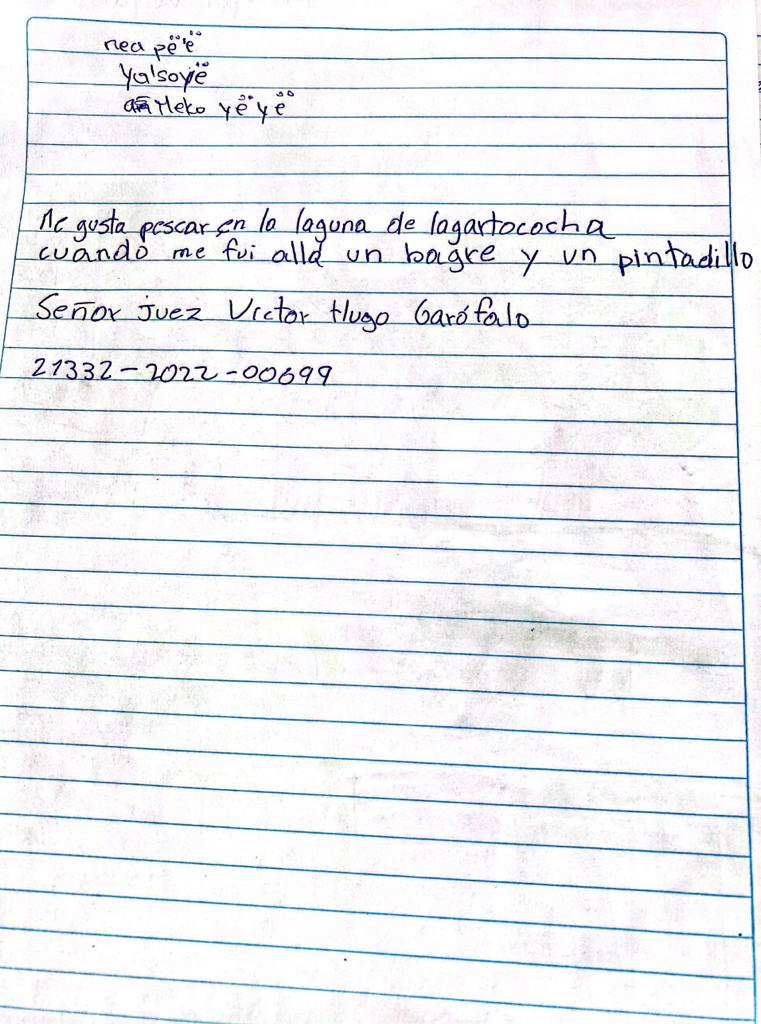 nea pë'ë
ya'soyë
añ meko yë'yë
Me gusta pescar en la laguna de lagartococha
cuando me fui alla un bagre y un pintadillo
Señor juez Victor Hugo Garófalo
21332-2022-00699